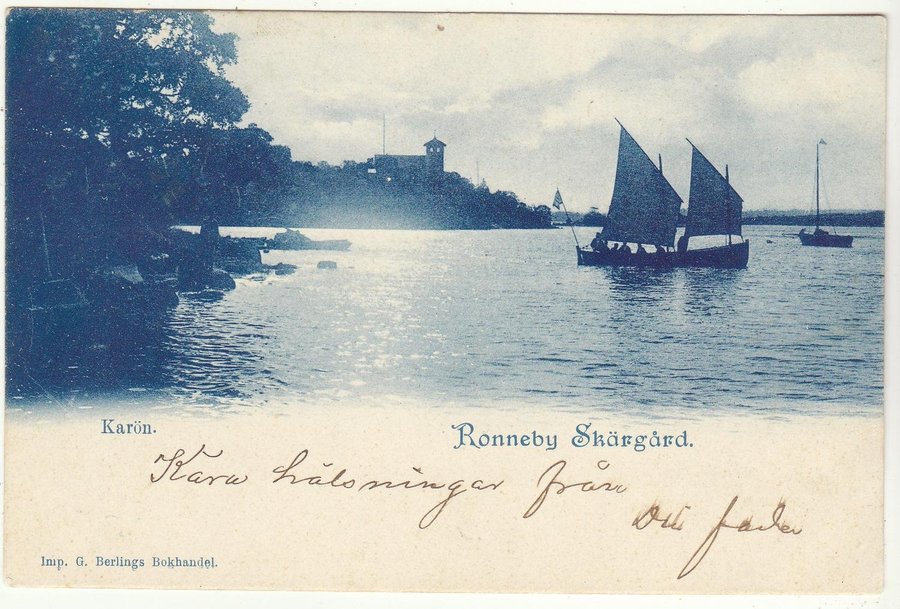 Karön.
Ronneby Skärgård.
Kara hälsningar från
Din fader
Imp. G. Berlings Bokhandel.